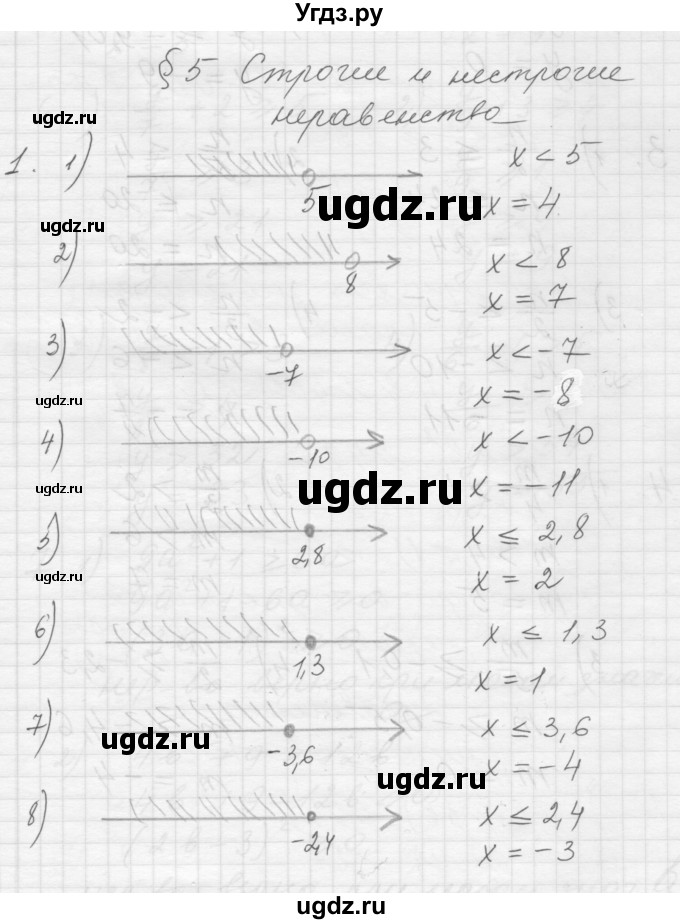 Угдз.ру
§ 5 Строгие и нестрогие
неравенство
1. 1) 5 x < 5
x = 4
2) 8 x < 8
x = 7
3) -7 x < -7
x = -8
4) -10 x < -10
x = -11
5) 2,8 x ≤ 2,8
x = 2
6) 1,3 x ≤ 1,3
x = 1
7) -3,6 x ≤ 3,6
x = -4
8) -2,4 x ≤ 2,4
x = -3
ugdz.ru
ugdz.ru
ugdz.ru
ugdz.ru
ugdz.ru
ugdz.ru
ugdz.ru
ugdz.ru
ugdz.ru
ugdz.ru